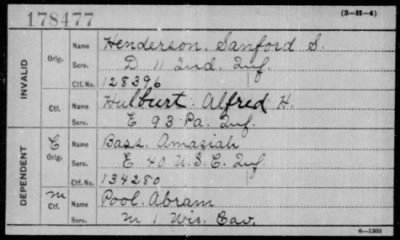 178477
(3-H-4)
INVALID
Orig.
Name Henderson, Sanford S.
Serv. D 11 Ind. Inf.
Ctf. No. 128396
Ctf.
Name Hulburt, Alfred H.
Serv. E 93 Pa. Inf.
DEPENDENT
C
Orig.
Name Bass, Amaziah
Serv. E 40 U.S.C. Inf
Ctf. No. 134280
m
Ctf.
Name Pool, Abram
Serv. M 1 Wis. Cav.
6-1303